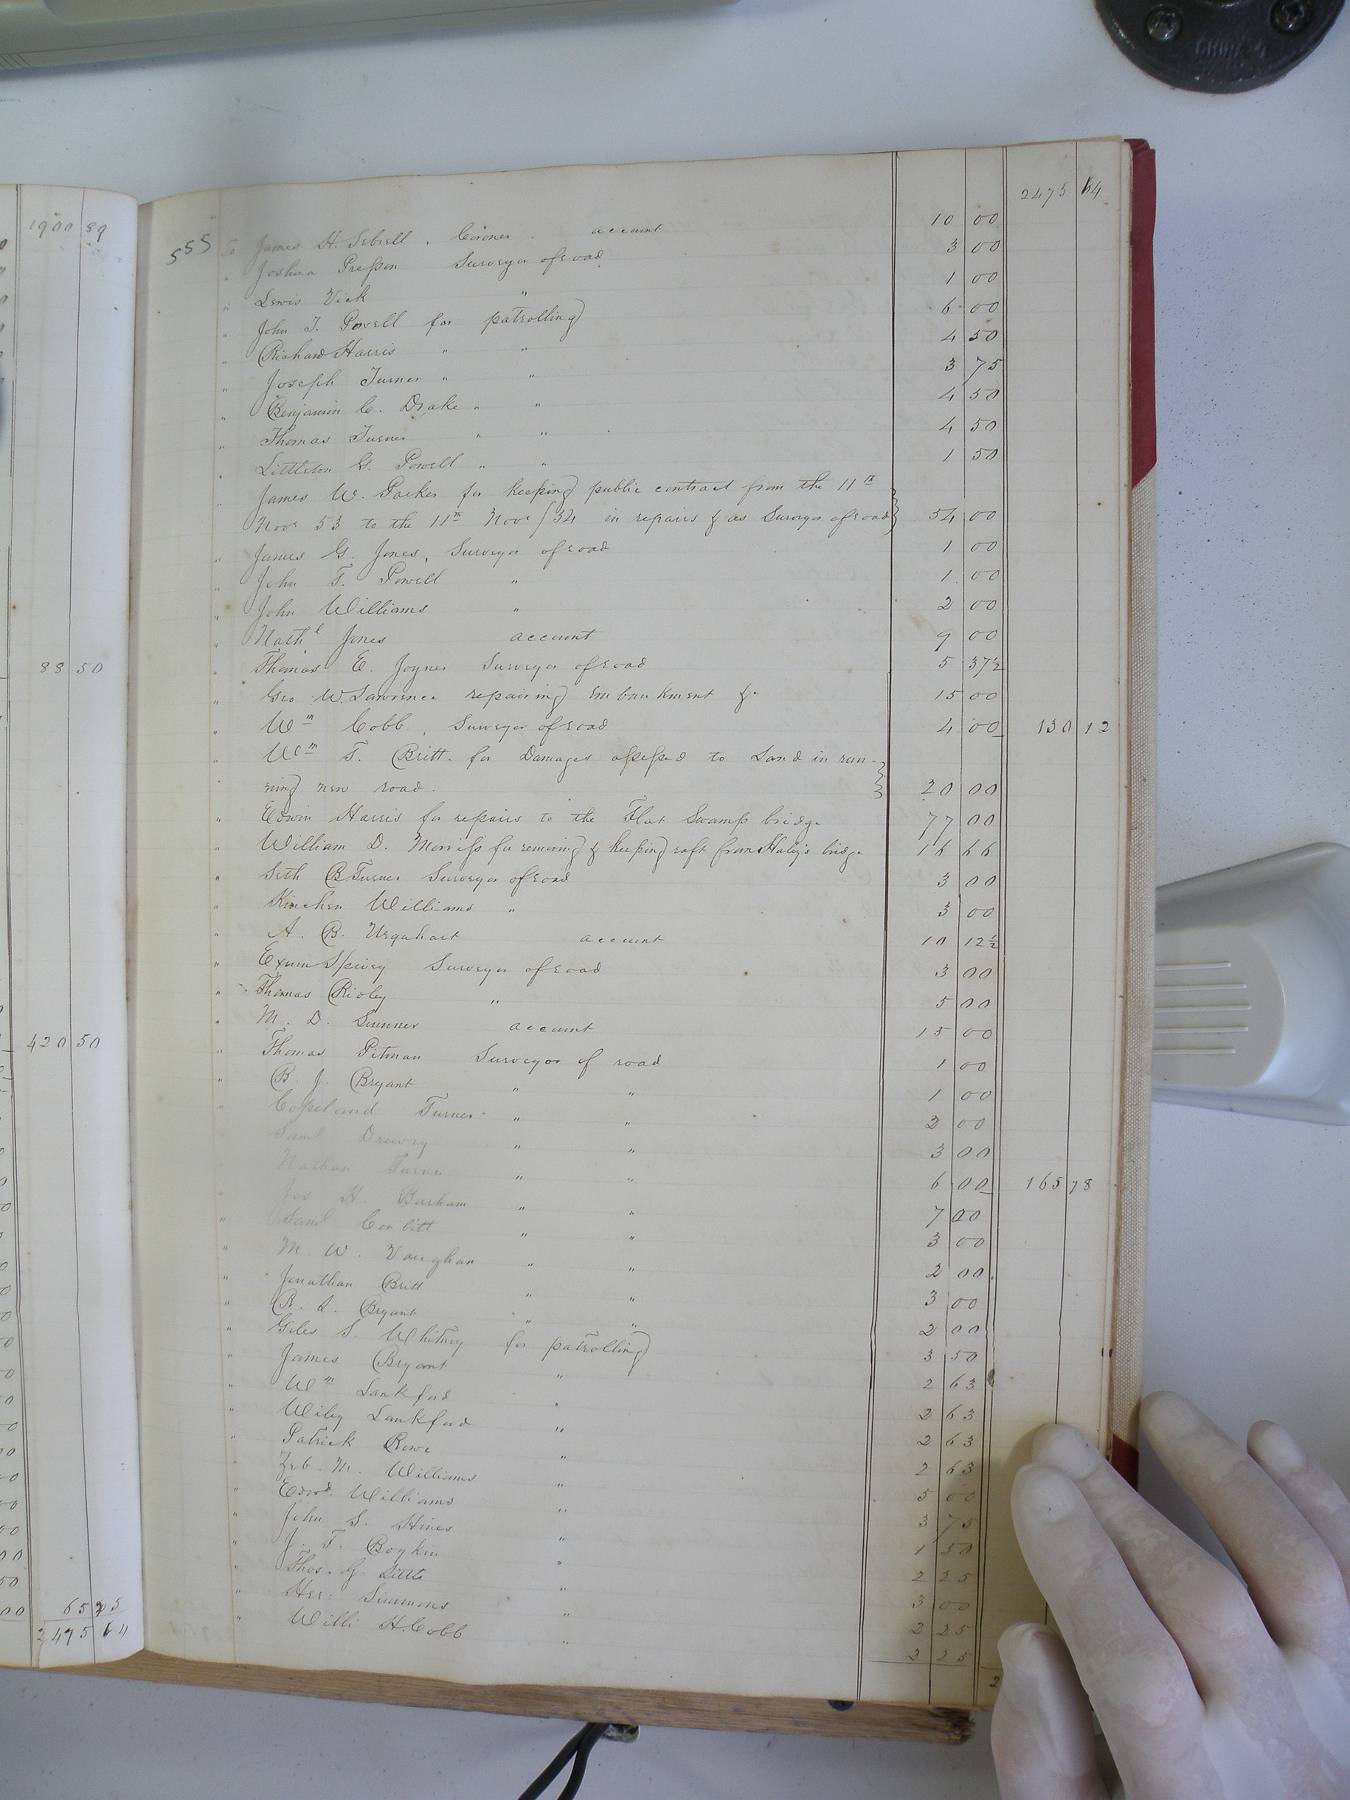 2475 64
1900 89
555 To James H. Sebrell, Coroner account 10 00
" Joshua Presson Surveyor of road 3 00
" Lewis Vick " 1 00
" John T. Powell for patrolling 6 00
" Richard Harris " " 4 50
" Joseph Turner " " 3 75
" Benjamin C. Drake " " 4 50
" Thomas Turner " " 4 50
" Littleton G. Powell " " 1 50
" James W. Parker for keeping public contract from the 11th
Novr 53 to the 11th Novr /54 in repairs & as Surveyor of road 54 00
" James G. Jones, Surveyor of road 1 00
" John T. Powell " 1 00
" John Williams " 2 00
" Nathl Jones account 9 00
88 50
" Thomas E. Joyner Surveyor of road 5 37½
" Geo W. Lawrence repairing embankment & 15 00
" Wm Cobb, Surveyor of road 4 00 130 12
" Wm T. Britt for Damages assessed to Land in run-
ning new road. 20 00
" Edwin Harris for repairs to the Flat Swamp bridge 77 00
" William D. Morriss for removing & keeping raft from Haley's bridge 16 66
" Seth B Turner Surveyor of road 3 00
" Kinchen Williams " 3 00
" A. B. Urquhart account 10 12½
" Exum Spivey Surveyor of road 3 00
" Thomas Ridley " 5 00
" M. D. Sumner account 15 00
420 50
" Thomas Pitman Surveyor of road 1 00
" B. J. Bryant " " 1 00
" Copeland Turner " " 2 00
Saml Drewry " " 3 00
Nathan Turner " " 6 00 165 78
Jos H. Barham " " 7 00
" Saml Corbitt " " 3 00
" M. W. Vaughan " " 2 00
" Jonathan Britt " " 3 00
" B. L. Bryant " " 2 00
" Giles S. Whitney for patrolling 3 50
" James Bryant " 2 63
" Wm Lankford " 2 63
" Wiley Lankford " 2 63
" Patrick Rowe " 2 63
" Zeb. M. Williams " 5 00
" Edwd. Williams " 3 75
" John S. Hines " 1 50
" J. T. Boykin " 2 25
" Thos. G. Little " 3 00
" Her: Simmons " 2 25
" Willi H. Cobb " 2 25
65 25
2475 64